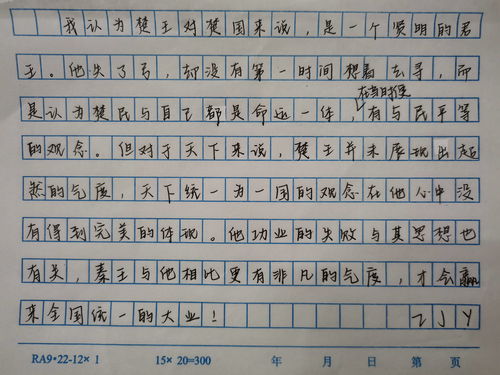 我认为楚王对楚国来说，是一个贤明的君
王。他失了弓，却没有第一时间想着去寻，而
在当时候
是认为楚民与自己都是命运一体，有与民平等
的观念。但对于天下来说，楚王并未展现出超
然的气度，天下统一为一国的观念在他心中没
有得到完美的体现。他功业的失败与其思想也
有关，秦王与他相比更有非凡的气度，才会赢
来全国统一的大业！ ZJY
RA9·22-12×1 15×20=300 年 月 日 第 页